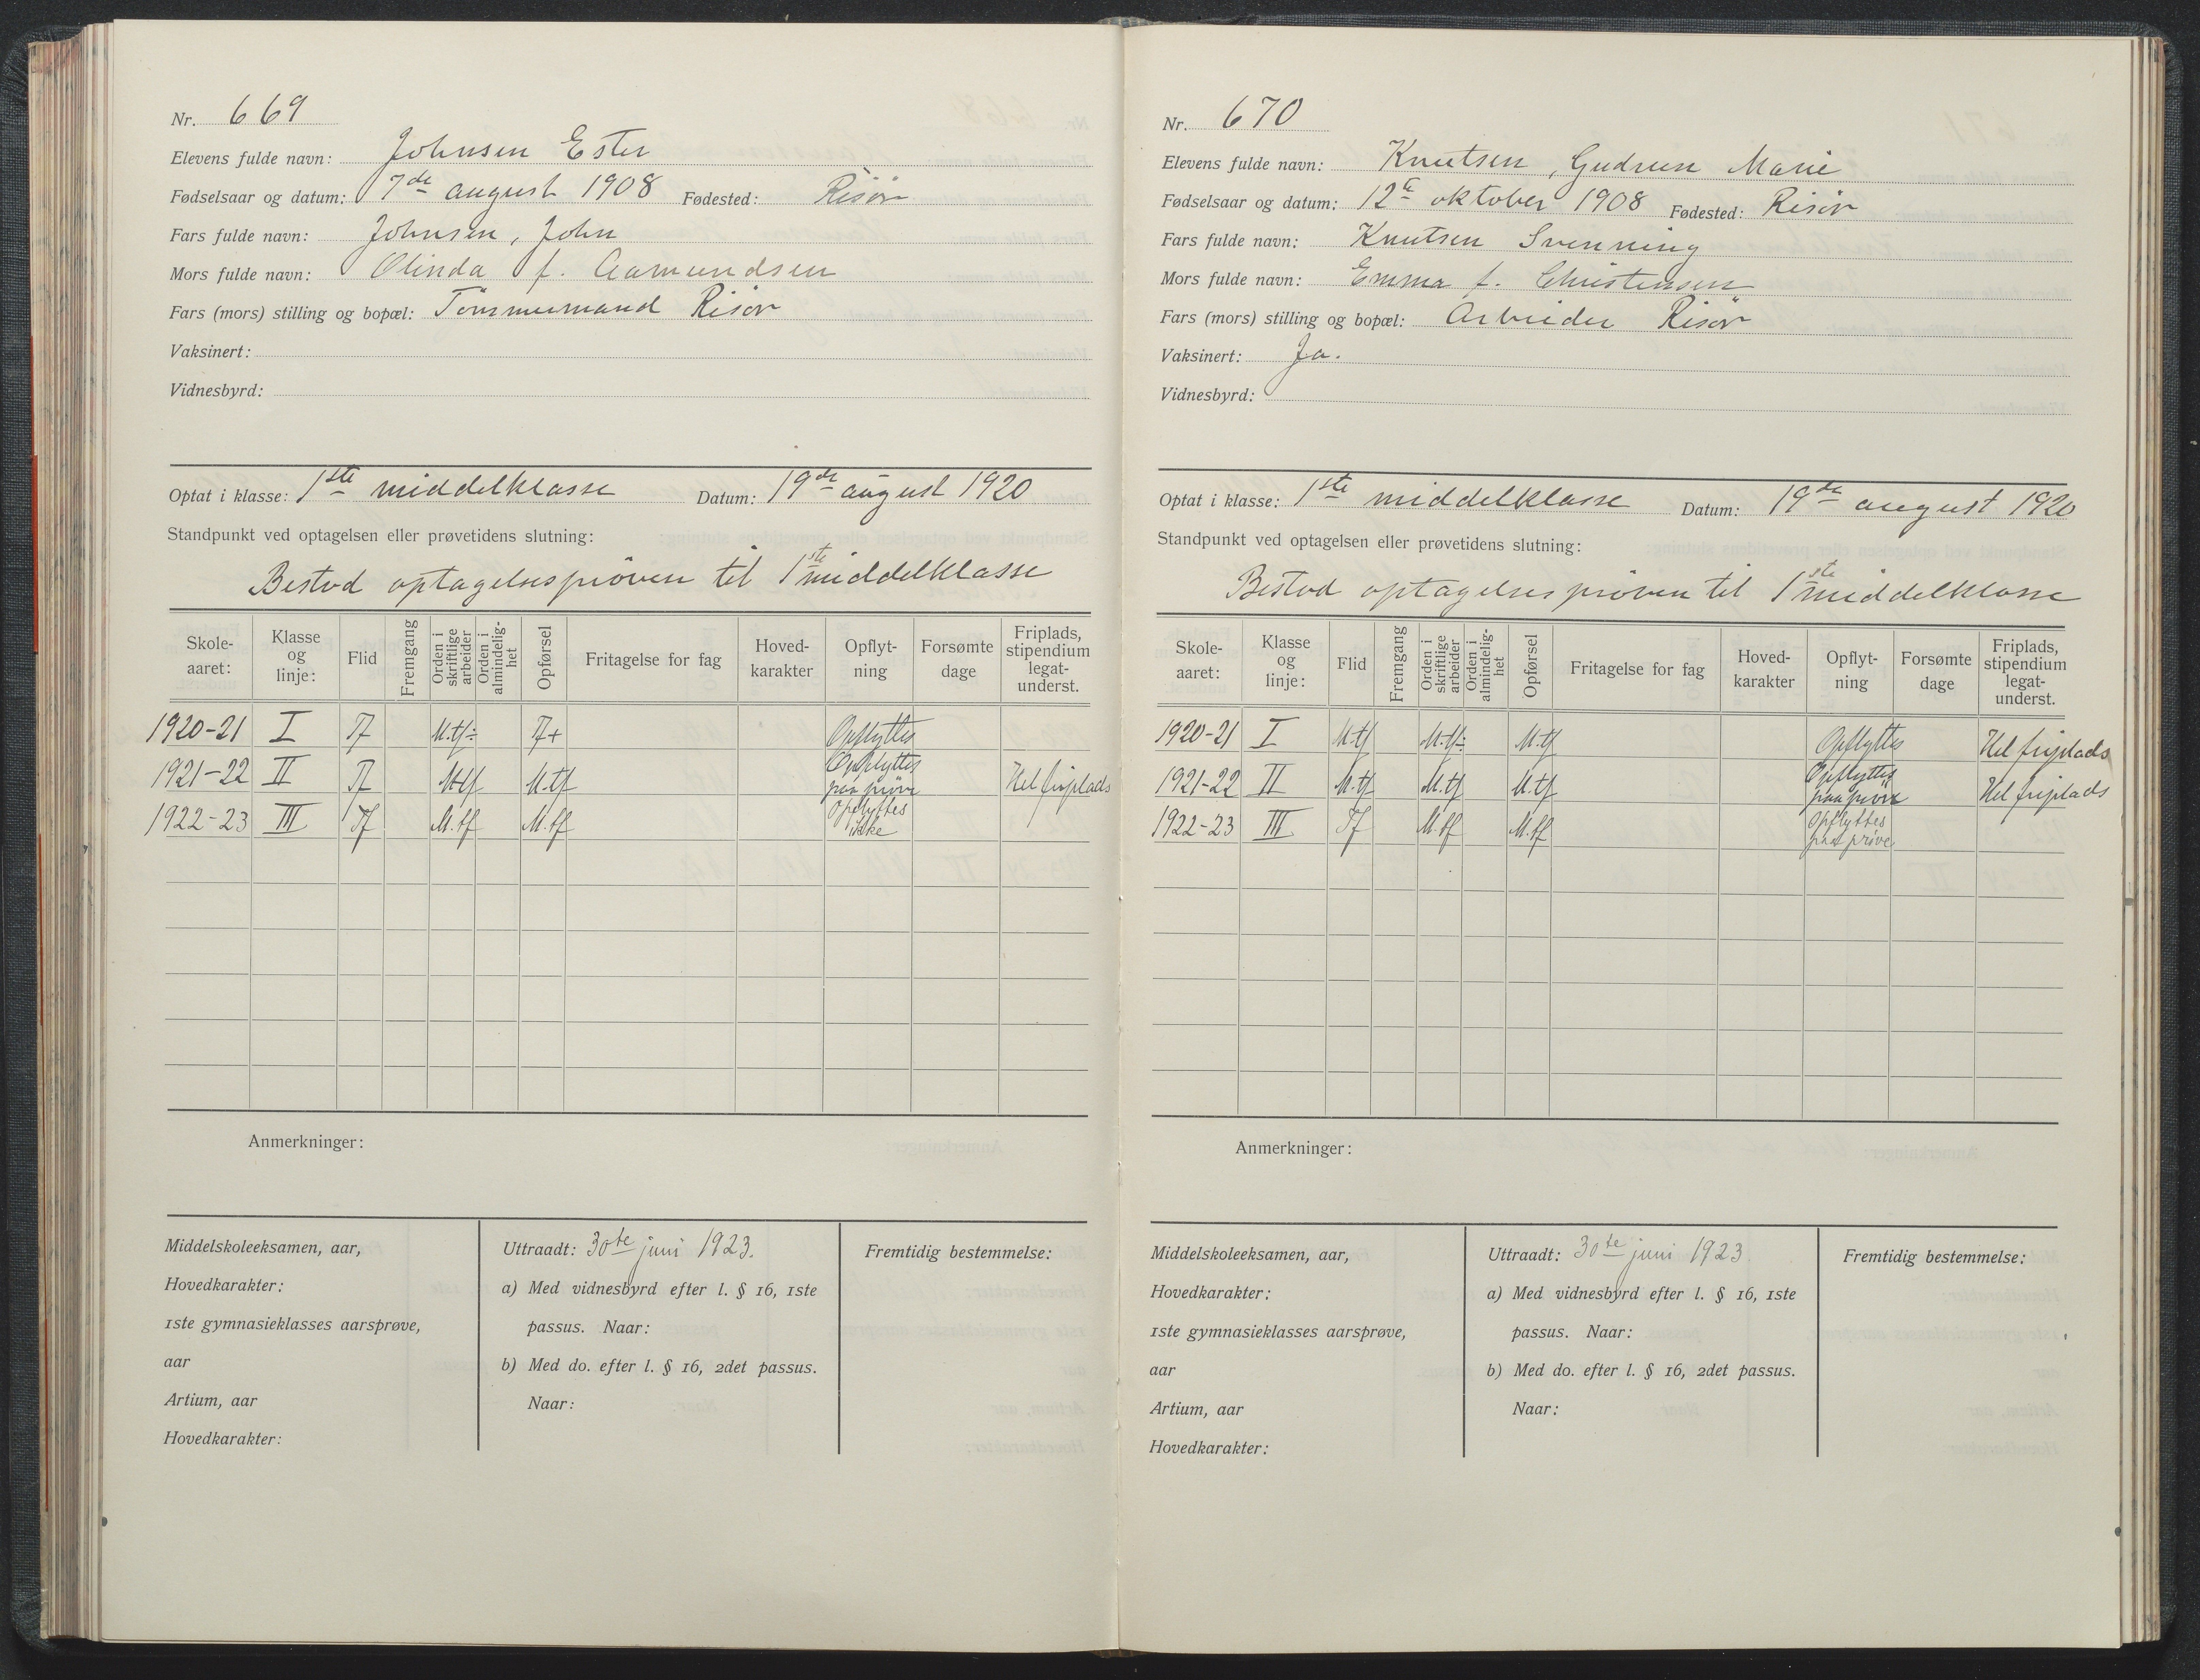 Nr. 669
Elevens fulde navn: Johnsen Ester
Fødselsaar og datum: 7de august 1908 Fødested: Risør
Fars fulde navn: Johnsen, John
Mors fulde navn: Olinda f. Aamundsen
Fars (mors) stilling og bopæl: Tømmermand Risør
Vaksinert:
Vidnesbyrd:
Optat i klasse: 1ste middelklasse Datum: 19de august 1920
Standpunkt ved optagelsen eller prøvetidens slutning:
Bestod optagelsesprøven til 1ste middelklasse
Skole-aaret: Klasse og linje: Flid Fremgang Orden i skriftlige arbeider Orden i almindelig-het Opførsel Fritagelse for fag Hoved-karakter Opflyt-ning Forsømte dage Friplads, stipendium legat-underst.
1920-21 I Tf M.tf÷ Tf+ Opflyttes
1921-22 II Tf M.tf M.tf Opflyttes paa prøve Hel friplads
1922-23 III Tf M.tf M.tf Opflyttes ikke
Anmerkninger:
Middelskoleeksamen, aar,
Hovedkarakter:
1ste gymnasieklasses aarsprøve,
aar
Artium, aar
Hovedkarakter:
Uttraadt: 30te juni 1923.
a) Med vidnesbyrd efter l. § 16, 1ste
passus. Naar:
b) Med do. efter l. § 16, 2det passus.
Naar:
Fremtidig bestemmelse:
Nr. 670
Elevens fulde navn: Knutsen, Gudrun Marie
Fødselsaar og datum: 12te oktober 1908 Fødested: Risør
Fars fulde navn: Knutsen Svenning
Mors fulde navn: Emma f. Christensen
Fars (mors) stilling og bopæl: Arbeider Risør
Vaksinert: Ja.
Vidnesbyrd:
Optat i klasse: 1ste middelklasse Datum: 19de august 1920
Standpunkt ved optagelsen eller prøvetidens slutning:
Bestod optagelsesprøven til 1ste middelklasse
Skole-aaret: Klasse og linje: Flid Fremgang Orden i skriftlige arbeider Orden i almindelig-het Opførsel Fritagelse for fag Hoved-karakter Opflyt-ning Forsømte dage Friplads, stipendium legat-underst.
1920-21 I M.tf M.tf÷ M.tf Opflyttes Hel friplads
1921-22 II M.tf M.tf M.tf Opflyttes paa prøve Hel friplads
1922-23 III Tf M.tf M.tf Opflyttes paa prøve
Anmerkninger:
Middelskoleeksamen, aar,
Hovedkarakter:
1ste gymnasieklasses aarsprøve,
aar
Artium, aar
Hovedkarakter:
Uttraadt: 30te juni 1923.
a) Med vidnesbyrd efter l. § 16, 1ste
passus. Naar:
b) Med do. efter l. § 16, 2det passus.
Naar:
Fremtidig bestemmelse: